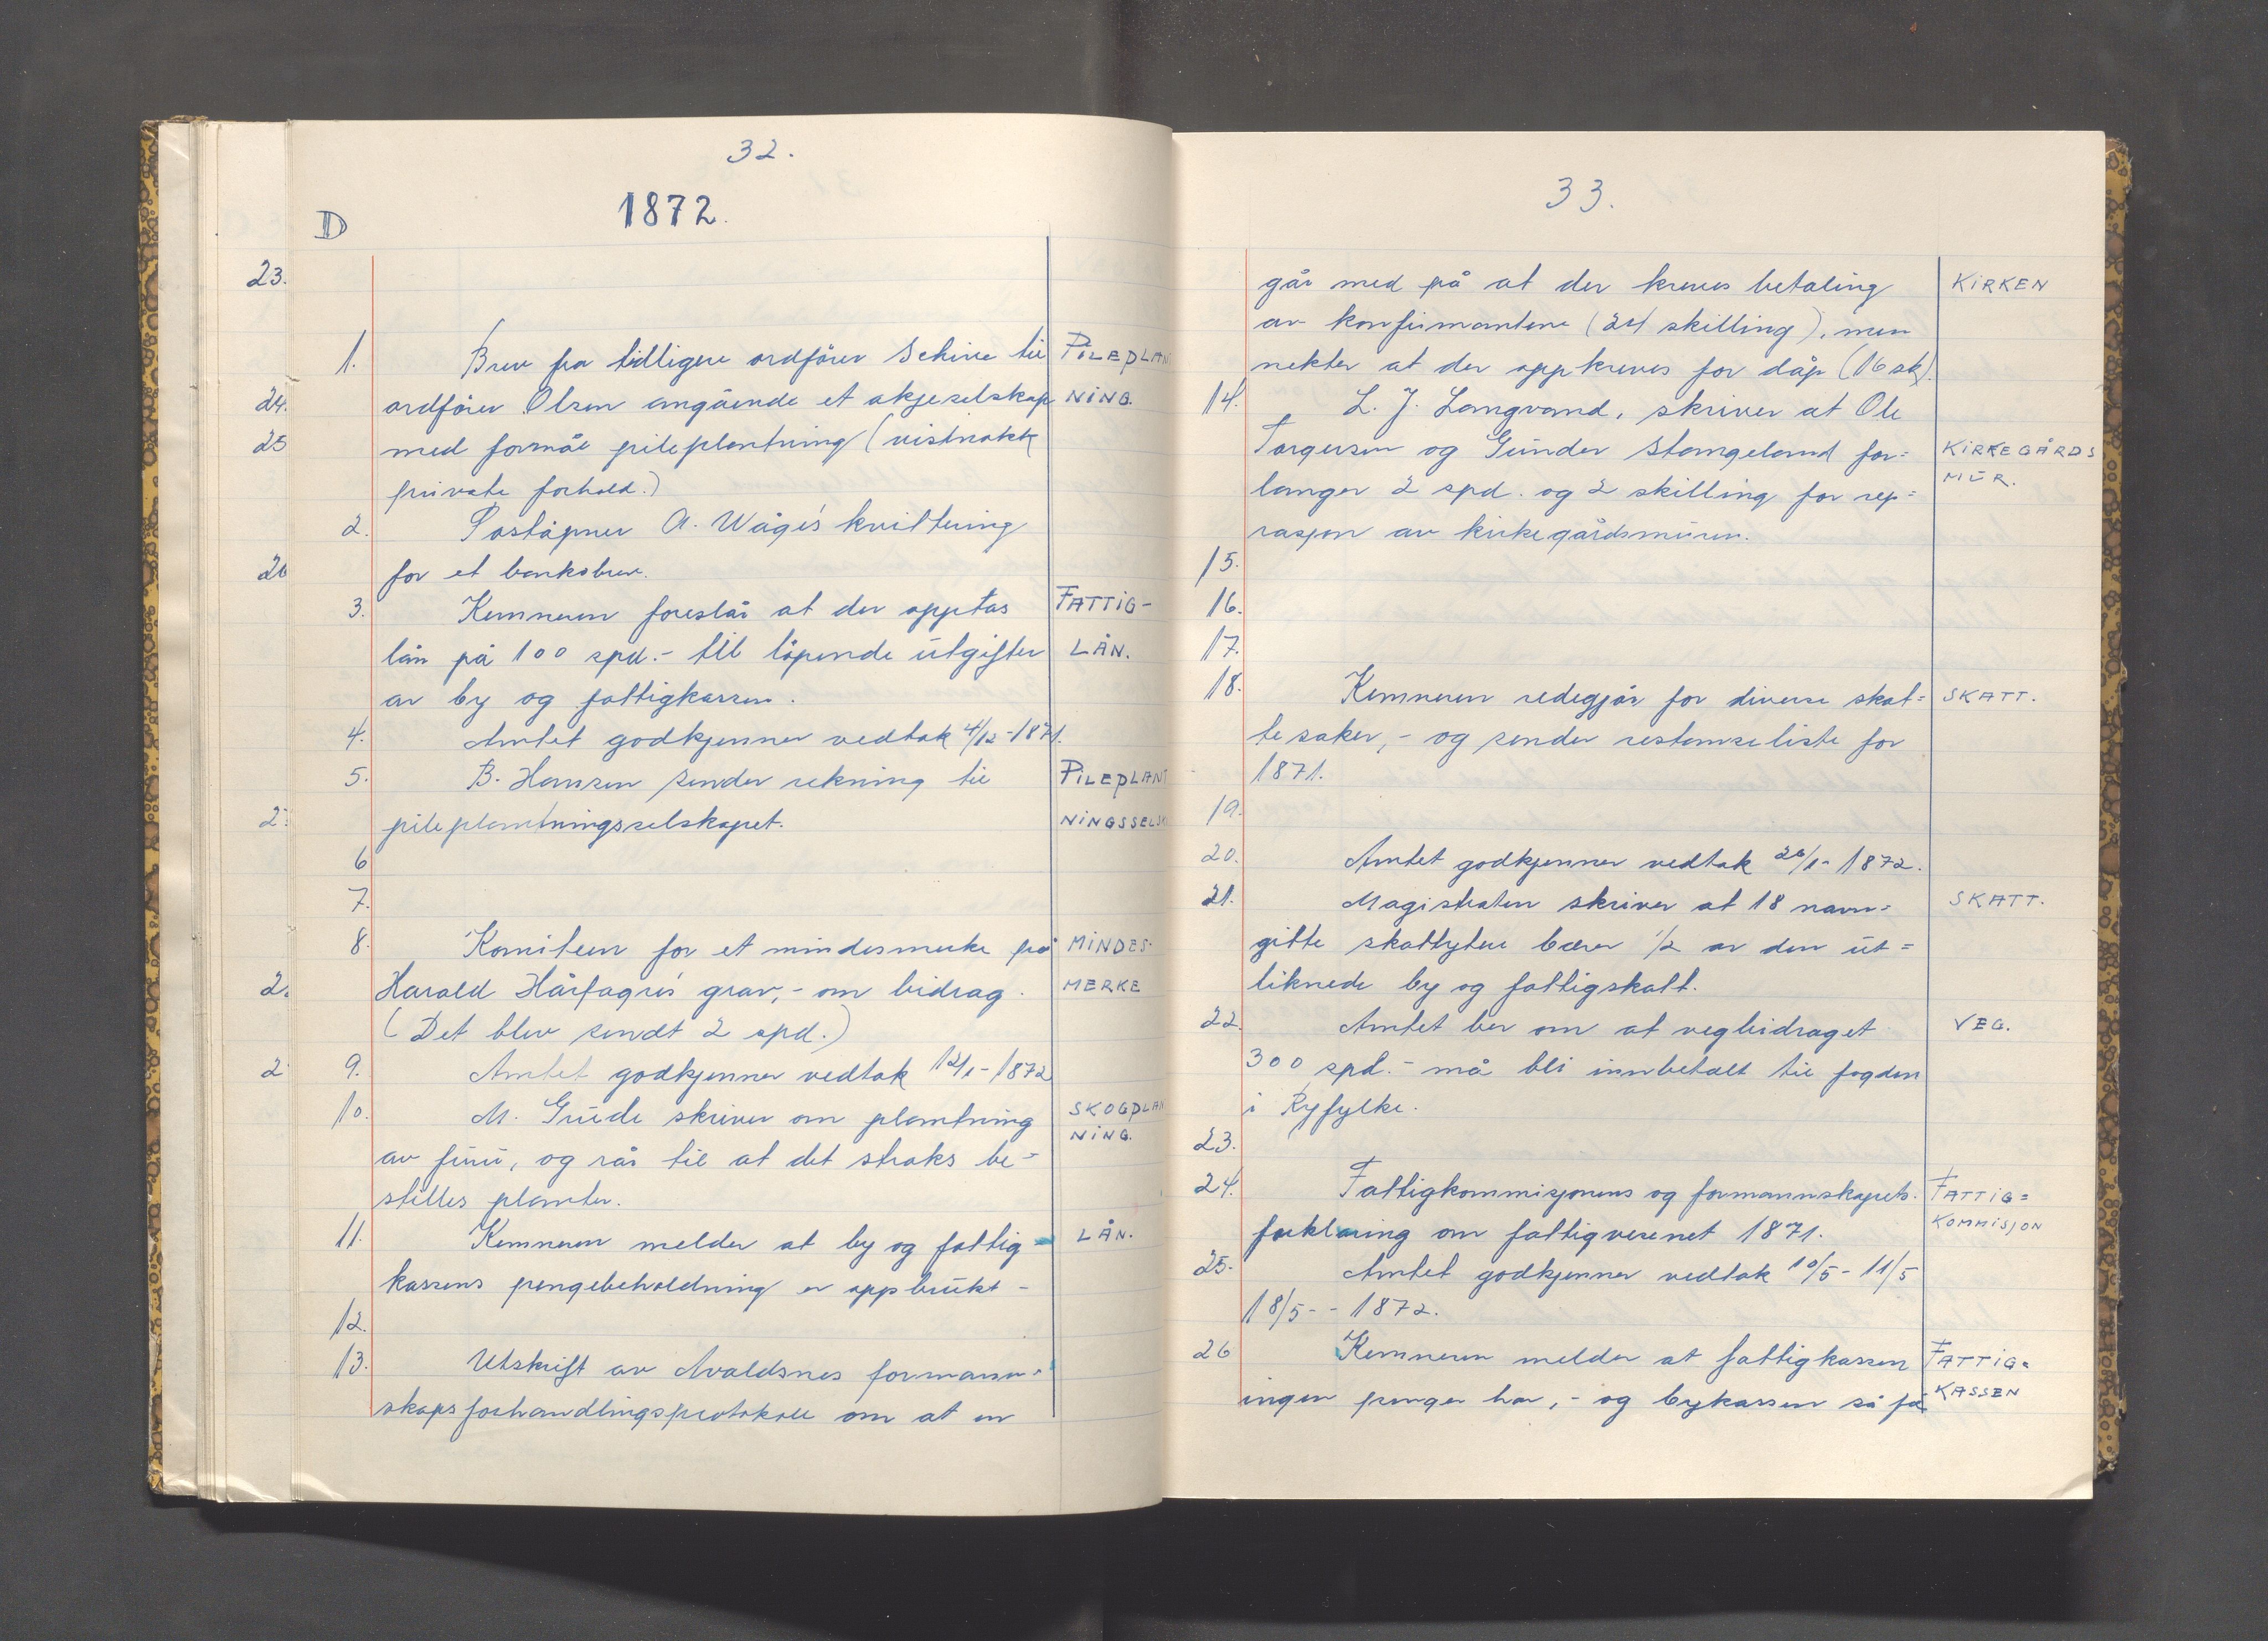 32.
1872.
D
1. Brev fra tidligere ordfører Schiee til PILEPLAN
ordfører Olsen angående et aksjeselskap NING.
med formål pileplantning (vistnokk
private forhold.)
2. Poståpner A. Våge's kvittering
for et bankobrev.
3. Kemneren foreslår at der opptas FATTIG-
lån på 100 spd.- til löpende utgifter LÅN.
av by og fattigkassen.
4. Amtet godkjenner vedtak 4/12-1871.
5. B. Hansen sender rekning til PILEPLANT
pileplantningsselskapet. NINGSSELSK
6
7.
8. Komiteen for et mindesmerke på MINDES-
Harald Hårfagre's grav,- om bidrag. MERKE
(Det blev sendt 2 spd.)
9. Amtet godkjenner vedtak 12/1-1872
10. M. Grude skriver om plantning SKOGPLAN
NING.
av furu, og rår til at det straks be-
stilles planter.
11. Kemneren melder at by og fattig- LÅN.
kassens pengebeholdning er oppbrukt -
12.
13. Utskrift av Avaldsnes formann-
skapsforhandlingsprotokoll om at en
23.
24.
25
26
2
2
2
33.
går med på at der kreves betaling KIRKEN
av konfirmantene (24 skilling), men
nekter at der oppkreves for dåp (16 sk).
14. L. J. Langvand, skriver at Ole
Torgersen og Gunder Stangeland for= KIRKEGÅRDS
langer 2 spd. og 2 skilling for rep= MUR.
rasjon av kirkegårdsmuren.
15.
16.
17.
18. Kemneren redegjør for diverse skat= SKATT.
tesaker,- og sender restanseliste for
1871.
19.
20. Amtet godkjenner vedtak 26/1- 1872.
21. Magistraten skriver at 18 navn= SKATT.
gitte skattytere bærer 1/2 av den ut=
liknede by og fattigskatt.
22. Amtet ber om at vegbidraget VEG.
300 spd.- må bli innbetalt til fogden
i Ryfylke.
23.
24. Fattigkommisjonens og formannskapets FATTIG=
forklaring om fattigvesenet 1871. KOMMISJON
25. Amtet godkjenner vedtak 10/5 - 11/5
18/5 - - 1872.
26 Kemneren melder at fattigkassen FATTIG=
ingen penger har,- og bykassen så få KASSEN